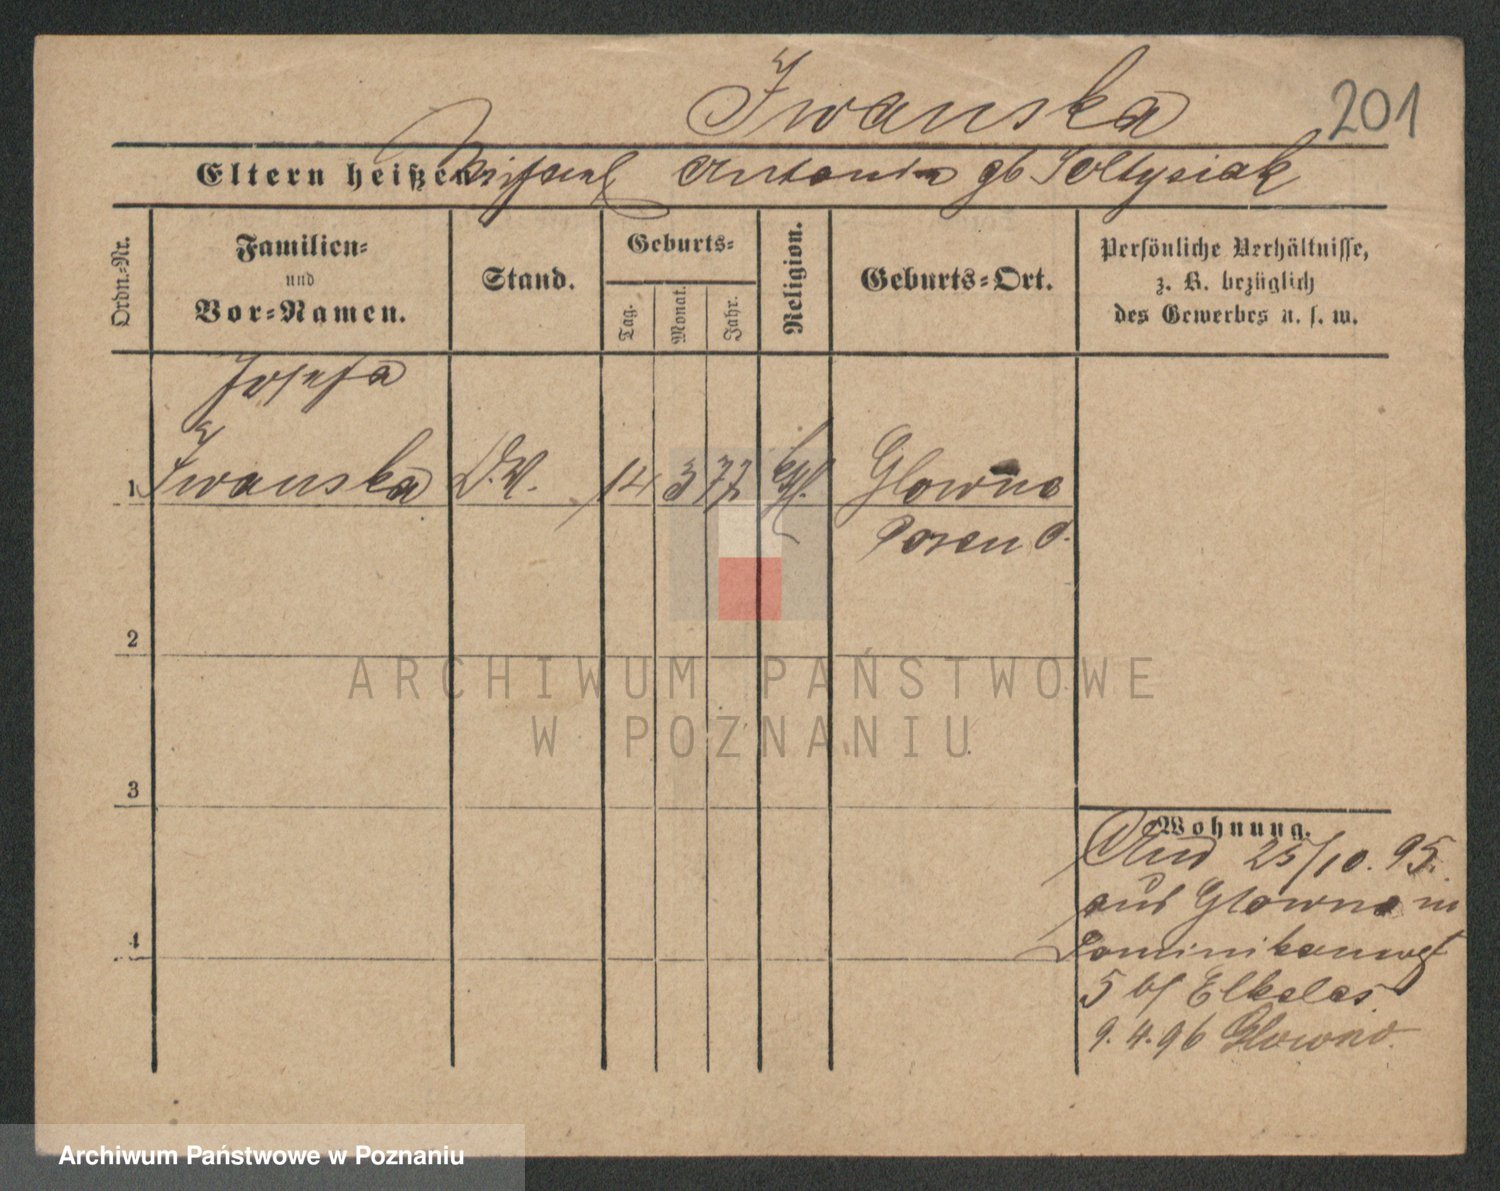 Iwanska
201
Eltern heißen: Michael Antonin gb Soltysiak
Ordn.-Nr.
Familien-
und
Vor-Namen.
Stand.
Geburts-
Tag.
Monat.
Jahr.
Religion.
Geburts-Ort.
Persönliche Verhältnisse,
z. B. bezüglich
des Gewerbes u. s. w.
Josefa
1 Iwanska D.M. 14 3 77 kath. Glowno
Posen O.
2
3
4
Wohnung.
25/10. 95.
aus Glowno in
Dominikanerstr
5 bei Elkeles
9.4.96 Glowno.
ARCHIWUM PAŃSTWOWE
W POZNANIU
Archiwum Państwowe w Poznaniu